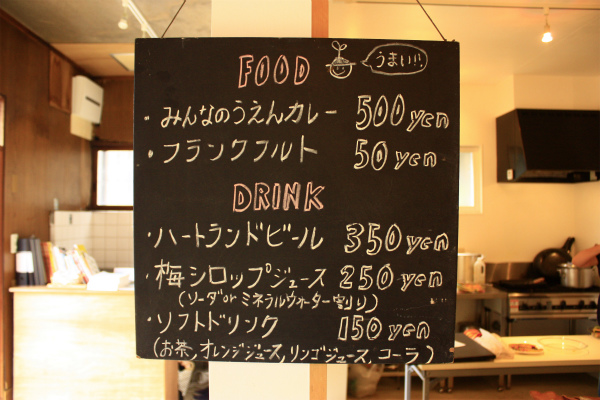 FOOD
うまい!!
・みんなのうえんカレー 500yen
・フランクフルト 50yen
DRINK
・ハートランドビール 350yen
・梅シロップジュース 250yen
(ソーダor ミネラルウォーター割り)
・ソフトドリンク 150yen
(お茶,オレンジジュース,リンゴジュース,コーラ)